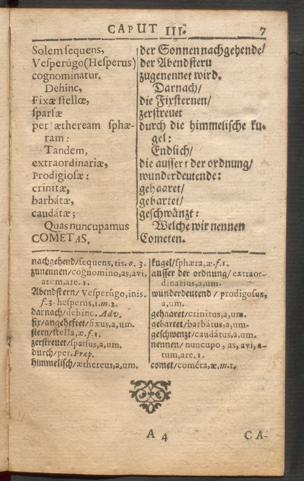 CAPUT III. 7
Solem sequens,
Vesperúgo (Hesperus)
cognominatur.
Dehinc,
Fixæ stellæ,
sparsæ
per ætheream sphæ-
ram:
Tandem,
extraordinariæ,
Prodigiosæ:
crinitæ,
barbátæ,
caudátæ;
Quas nuncupamus
COMETAS.
der Sonnen nachgehende/
der Abendstern
zugenennet wird.
Darnach/
die Fixsternen/
zerstreuet
durch die himmelische ku-
gel:
Endlich/
die ausser der ordnung/
wunderdeutende:
gehaaret/
gebartet/
geschwänzt:
Welche wir nennen
Cometen.
nachgehend/sequens, tis. o. 3.
zunennen/cognomino, as, avi,
atum, are. 1.
Abendstern/ Vesperúgo, inis.
f. 3. hesperus, i. m. 2.
darnach/dehinc. Adv.
fix/angeheftet/fixus, a, um.
stern/stella, æ. f. 1.
zerstreuet/sparsus, a, um.
durch/per. Præp.
himmelisch/æthereus, a, um.
kugel/sphæra, æ. f. 1.
ausser der ordnung/extraor-
dinarius, a, um.
wunderdeutend/prodigosus,
a, um.
gehaaret/crinitus, a, um.
gebartet/barbátus, a, um.
geschwenzt/caudátus, a, um.
nennen/nuncupo, as, avi, a-
tum, are. 1.
comet/cométa, æ. m. 1.
A 4 CA-